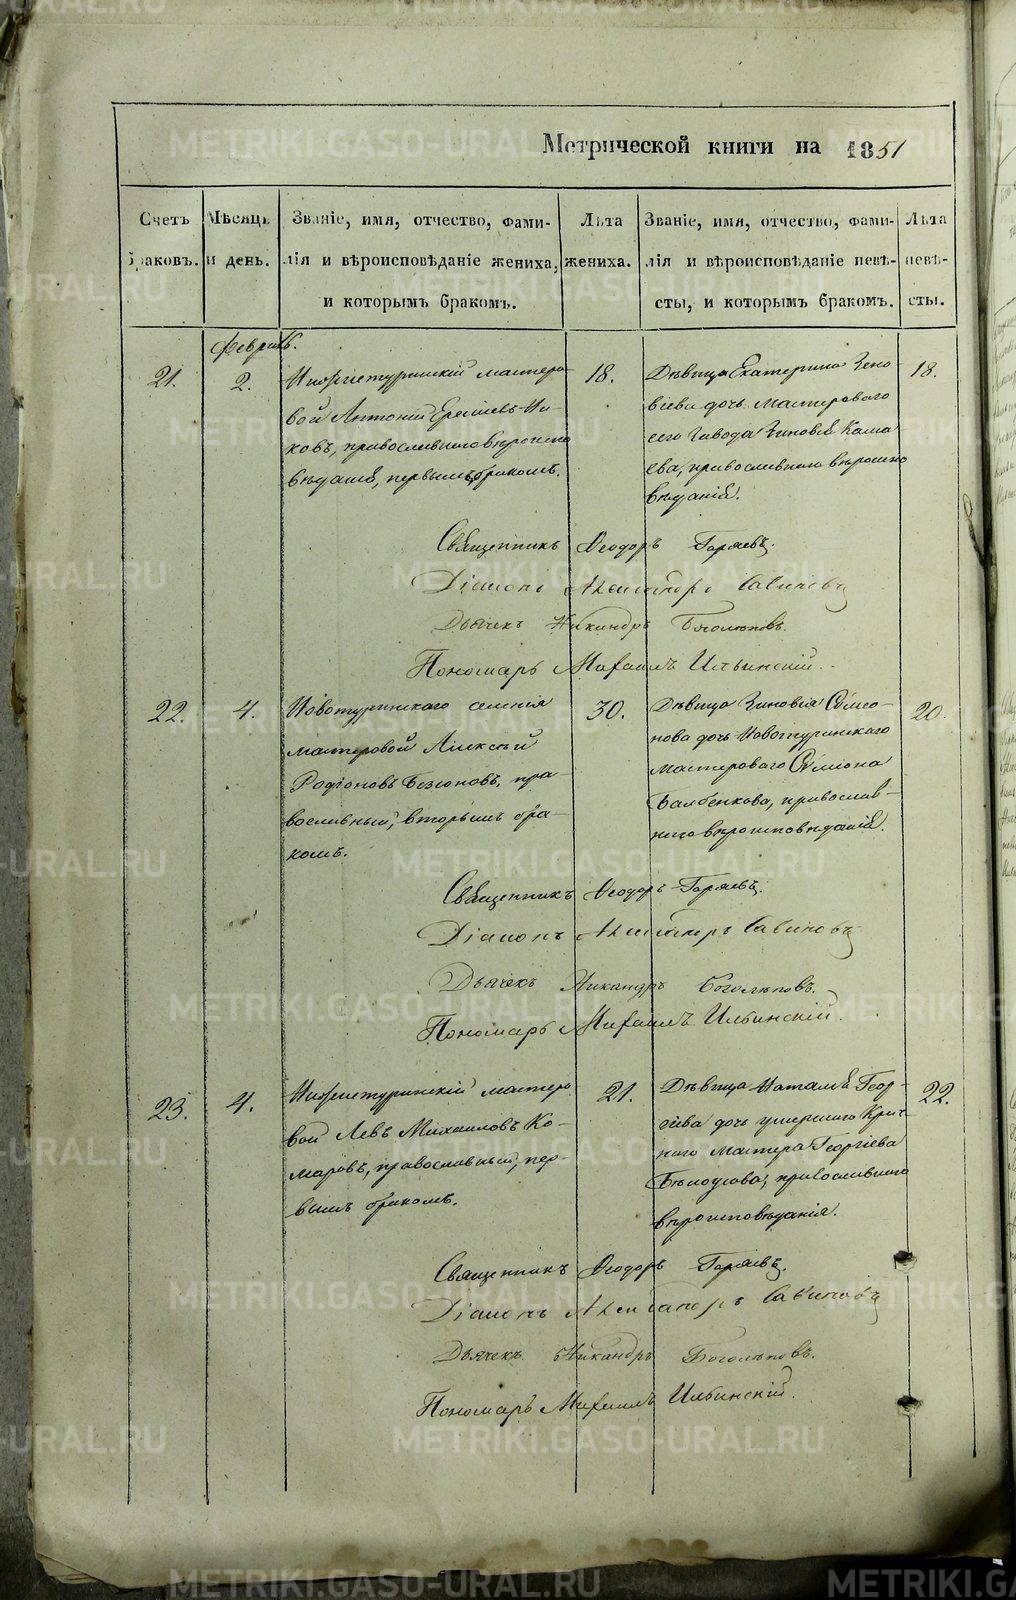 Метрической книги на 1851
Счетъ браковъ.
Мѣсяцъ и день.
Званіе, имя, отчество, фами-
лія и вѣроисповѣданіе жениха,
и которымъ бракомъ.
Лѣта
жениха.
Званіе, имя, отчество, фами-
лія и вѣроисповѣданіе невѣ-
сты, и которымъ бракомъ.
Лѣта
невѣ-
сты.
Февраль.
21.
2.
Нижнетуринскій мастеро-
вой Антоній
православнаго вѣроиспо
вѣданія, первымъ бракомъ.
18.
Дѣвица Екатерина Зено-
віева дочь мастероваго
сего Завода Зиновія
православнаго вѣроиспо
вѣданія.
18.
Священникъ Ѳеодоръ Горяевъ.
Діаконъ Александръ Савиновъ
Дьячекъ Никандръ Боголѣповъ.
Пономарь Михаилъ Ильинскій.
22.
4.
Новотуринскаго селенія
мастеровой Алексѣй
Родіоновъ пра-
вославный, вторымъ бра-
комъ.
30.
Дѣвица Зиновія Симео-
нова дочь Новотуринскаго
мастероваго Симеона
православ-
наго вѣроисповѣданія.
20.
Священникъ Ѳеодоръ Горяевъ.
Діаконъ Александръ Савиновъ
Дьячекъ Никандръ Боголѣповъ.
Пономарь Михаилъ Ильинскій.
23.
4.
Нижнетуринскій мастеро
вой Левъ Михаиловъ Ко-
маровъ, православный, пер-
вымъ бракомъ.
21.
Дѣвица Наталія Геор-
гіева дочь умершаго Крич-
наго мастера Георгіева
Бѣлоусова, православнаго
вѣроисповѣданія.
22.
Священникъ Ѳеодоръ Горяевъ.
Діаконъ Александръ Савиновъ
Дьячекъ Никандръ Боголѣповъ.
Пономарь Михаилъ Ильинскій.
METRIKI.GASO-URAL.RU